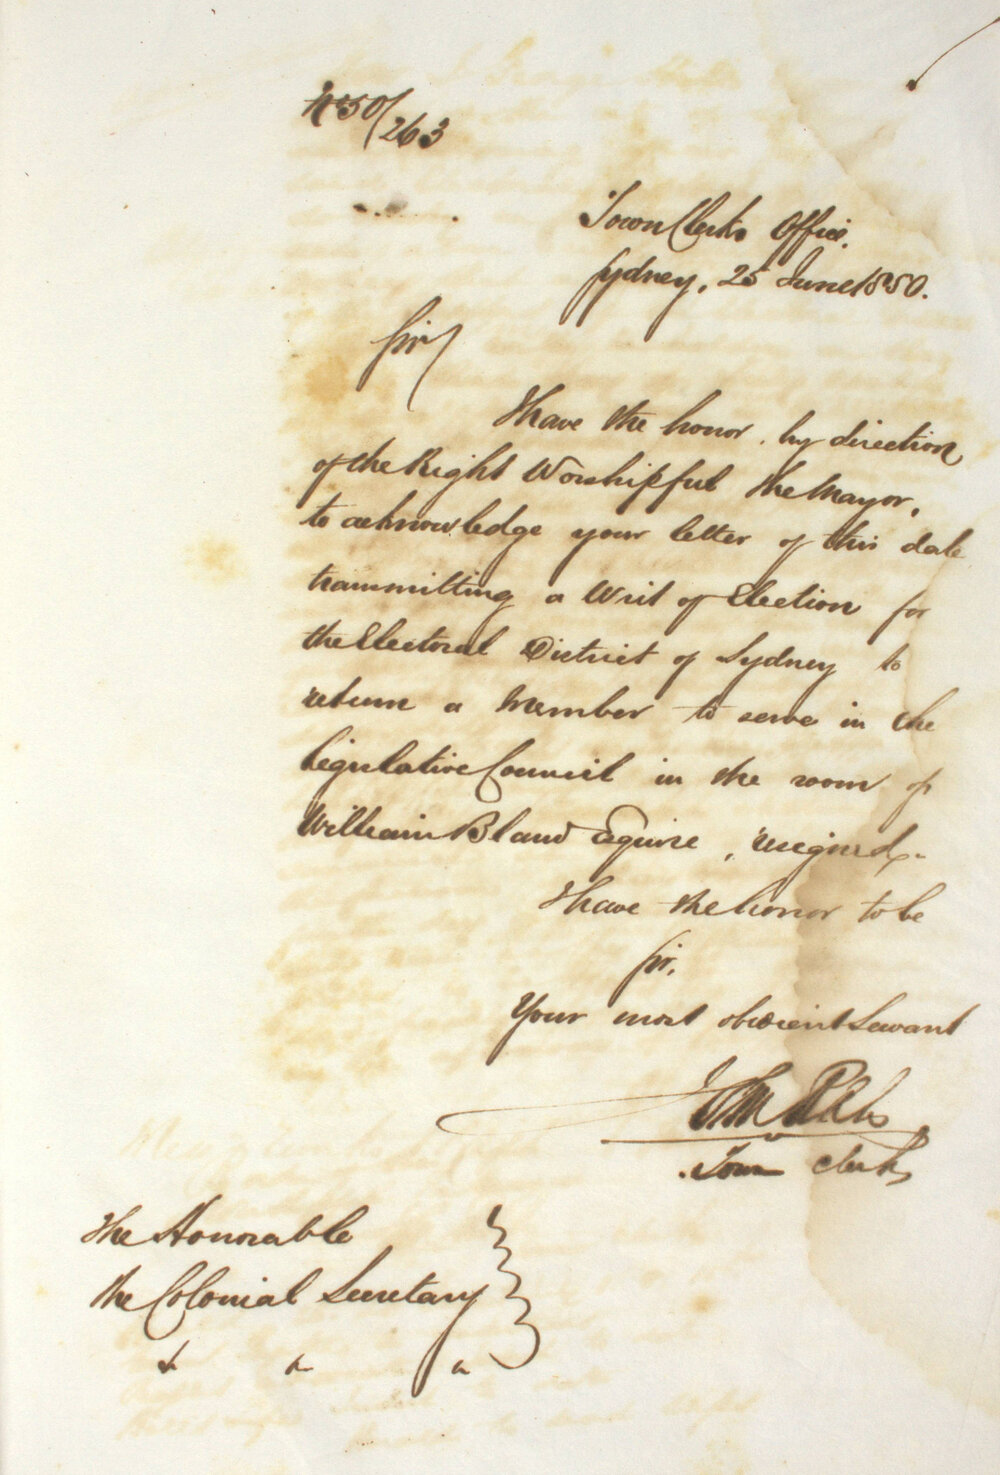 No 50/263
Town Clerks Office.
Sydney, 25 June 1850.
Sir
I have the honor, by direction
of the Right Worshipful the Mayor,
to acknowledge your letter of this date
transmitting a Writ of Election for
the Electoral District of Sydney to
return a Member to serve in the
Legislative Council in the room of
William Bland Esquire, resigned.
I have the honor to be
Sir,
Your most obedient Servant
Town Clerk
The Honorable
the Colonial Secretary